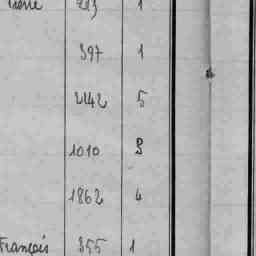 Pierre 293 1
397 1
2142 5
1010 3
1862 4
François 355 1